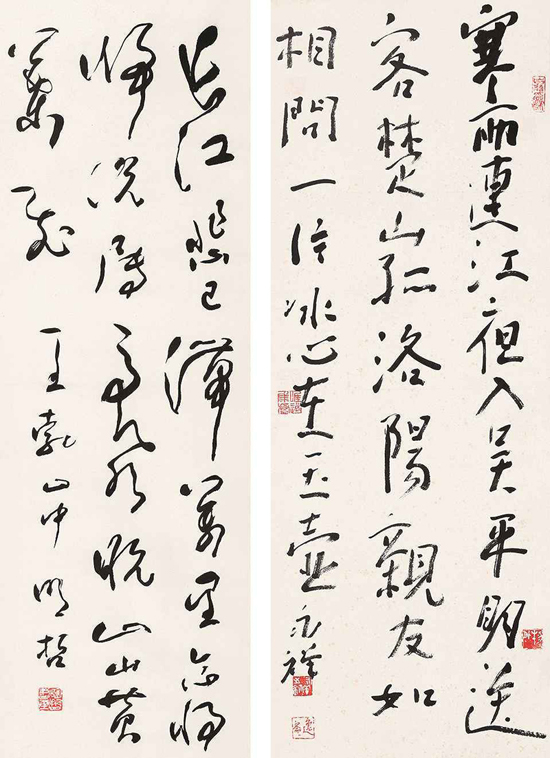 寒雨連江夜入吴平明送
客楚山孤洛陽親友如
相問一片冰心在玉壺
长江悲已滞萬里念将
歸况屬高風晚山山黄
葉飛 王勃山中 明哲